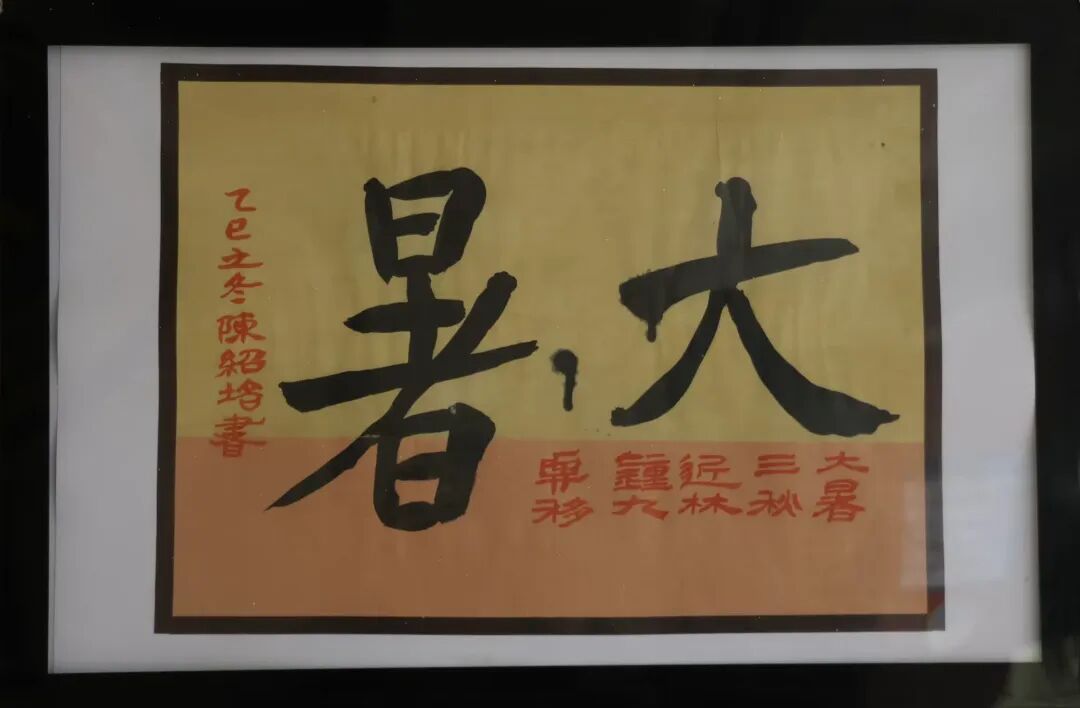 大暑
大暑
三秋
近林
鐘九
夏移
乙巳立冬陳紹書